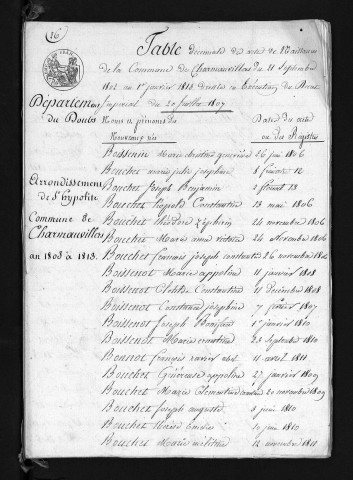 26
Table décennale des actes de Naissance
de la Commune de Charmauvillers du 21 Septembre
1802 au 1er janvier 1813 dressée en Exécution du Décret
Impérial du 20 juillet 1807
Département
du Doubs
Arrondissement
de St hypolite
Commune de
Charmauvillers
an 1803 à 1813
Noms et prénoms des
Nouveaux nés
Date des actes
ou des Registres
Boissenin Marie 26 juin 1806
Bouchet marie julie josephine
Bouchet Joseph Benjamin 2 février 13
Bouchet Léopold Constantin 13 mai 1806
Bouchet théodore Zéphirin 24 novembre 1806
Bouchet Marie anne victoire 24 Novembre 1806
Bouchet francois joseph constantin 26 novembre 1806
Boissenot Marie appoline 11 janvier 1808
Boissenot Constantine 11 decembre 1808
Boissenot Constance josephine 7 février 1807
Boissenot Joseph Boniface 1er janvier 1810
Boissenot Marie 23 Septembre 1810
Bonnot françois xavier abel 11 avril 1811
Bouchet Généreuse appoline 27 janvier 1809
Bouchet Marie Clementine 20 novembre 1809
Bouchet joseph auguste 3 juin 1810
Bouchet Marie 10 juin 1810
Bouchet Marie 12 novembre 1811